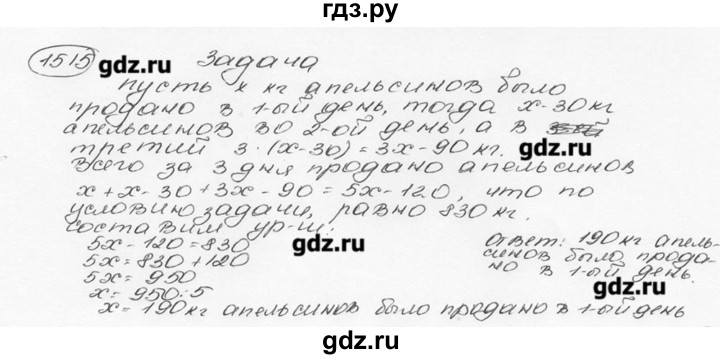 гдз.ру
1515 gdz.ru Задача
пусть x кг апельсинов было
продано в 1-ый день, тогда x-30 кг
апельсинов во 2-ой день, а в
третий 3·(x-30)=3x-90 кг. gdz.ru
Всего за 3 дня продано апельсинов
x+x-30+3x-90=5x-120, что по
условию задачи, равно 830 кг.
gdz.ru
Составим ур-ие:
5x-120=830
5x=830+120
5x=950
x=950:5
x=190 кг апельсинов было продано в 1-ый день
gdz.ru
Ответ: 190 кг апель-
синов было прода-
но в 1-ый день.
gdz.ru
gdz.ru